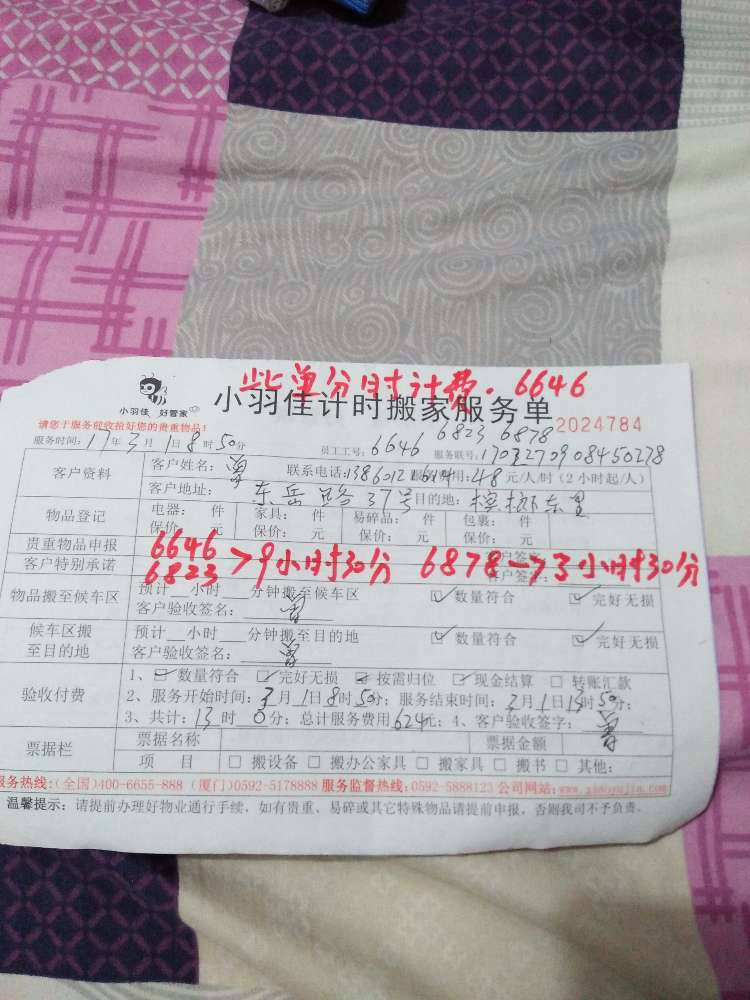 此单分时计费.6646
小羽佳 好管家
小羽佳计时搬家服务单
2024784
请您于服务前收拾好您的贵重物品!
6823 6878
服务时间:17年3月1日8时50分 员工工号:6646 服务联号:
客户资料
客户姓名:曾 联系电话: 48元/人/时(2小时起/人)
客户地址:东岳路37号 目的地:槟榔东里
物品登记
电器: 件 家具: 件 易碎品: 件 包裹: 件
保价: 元 保价: 元 保价: 元 保价: 元
贵重物品申报 客户签字:
客户特别承诺 客户签字:
6646
6823 >9小时30分 6878→3小时30分
物品搬至候车区
预计__小时__分钟搬至候车区 ☑数量符合 ☑完好无损
客户验收签名:曾
候车区搬至目的地
预计__小时__分钟搬至目的地 ☑数量符合 ☑完好无损
客户验收签名:曾
验收付费
1、☑数量符合 ☑完好无损 ☑按需归位 ☑现金结算 □转账汇款
2、服务开始时间:3月1日8时50分;服务结束时间:3月1日 时50分;
3、共计:13时0分;总计服务费用624元;4、客户验收签字:曾
票据栏
票据名称 票据金额
项目 □搬设备 □搬办公家具 □搬家具 □搬书 □其他:
服务热线:(全国)400-6655-888 (厦门)0592-5178888 服务监督热线:0592-5888123 公司网站:www.xiaoyujia.com
温馨提示:请提前办理好物业通行手续,如有贵重、易碎或其它特殊物品请提前申报,否则我司不予负责。